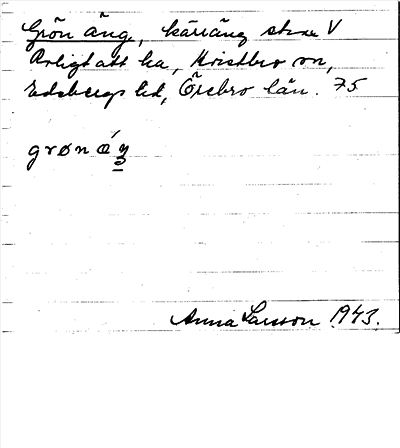 Grön äng, kärräng strax V
Arligt att ha, Kvistbro sn,
Edsbergs hd, Örebro län. 75
grøn ǽŋ
Anna Larsson 1943.